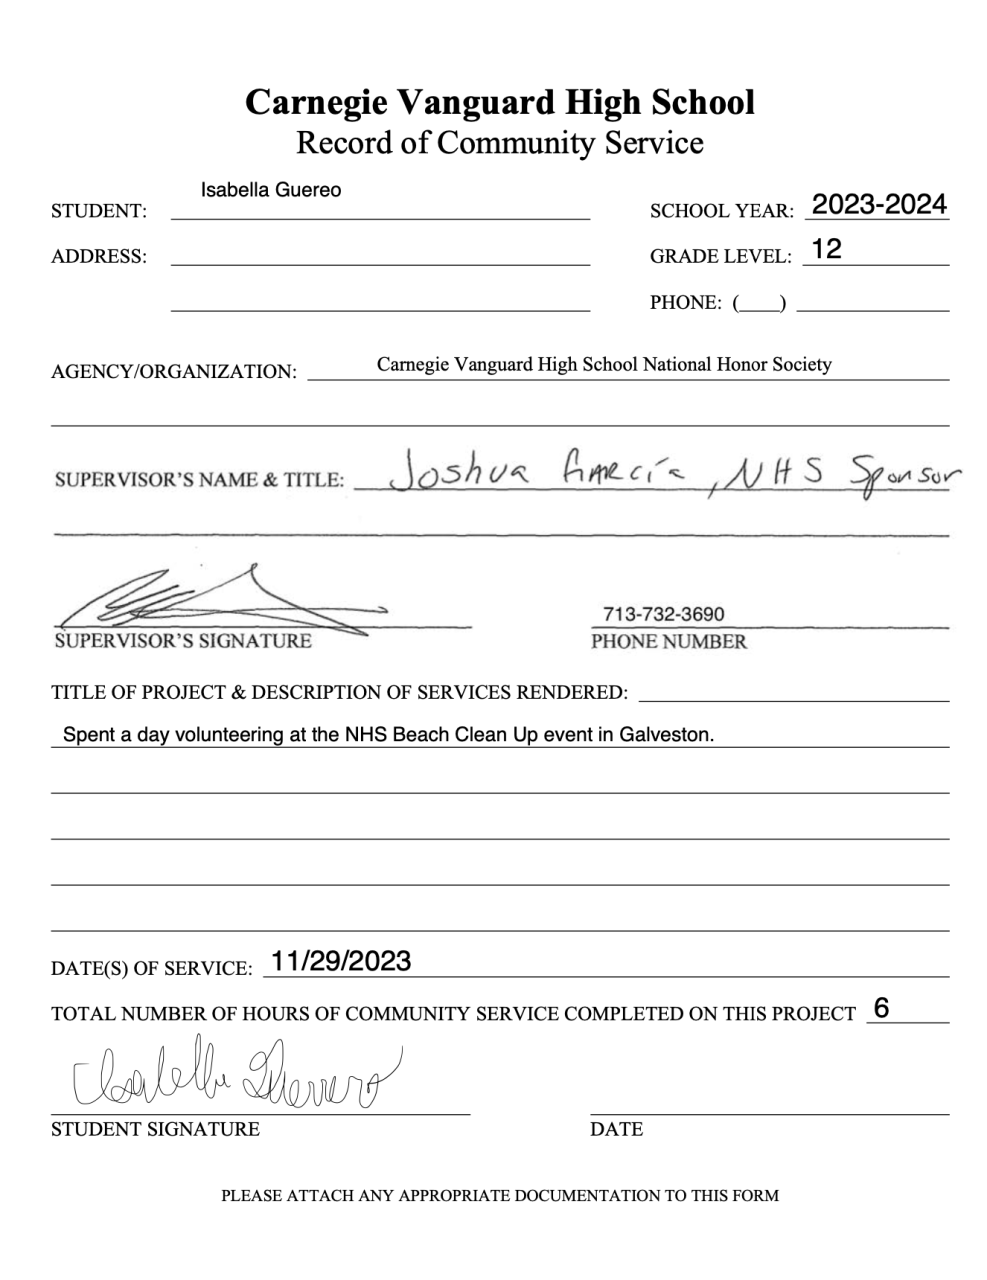 Carnegie Vanguard High School
Record of Community Service
STUDENT: Isabella Guereo
SCHOOL YEAR: 2023-2024
ADDRESS:
GRADE LEVEL: 12
PHONE: (____)
AGENCY/ORGANIZATION: Carnegie Vanguard High School National Honor Society
SUPERVISOR'S NAME & TITLE: Joshua García, NHS Sponsor
713-732-3690
SUPERVISOR'S SIGNATURE
PHONE NUMBER
TITLE OF PROJECT & DESCRIPTION OF SERVICES RENDERED:
Spent a day volunteering at the NHS Beach Clean Up event in Galveston.
DATE(S) OF SERVICE: 11/29/2023
TOTAL NUMBER OF HOURS OF COMMUNITY SERVICE COMPLETED ON THIS PROJECT 6
Isabella Guerrero
STUDENT SIGNATURE
DATE
PLEASE ATTACH ANY APPROPRIATE DOCUMENTATION TO THIS FORM